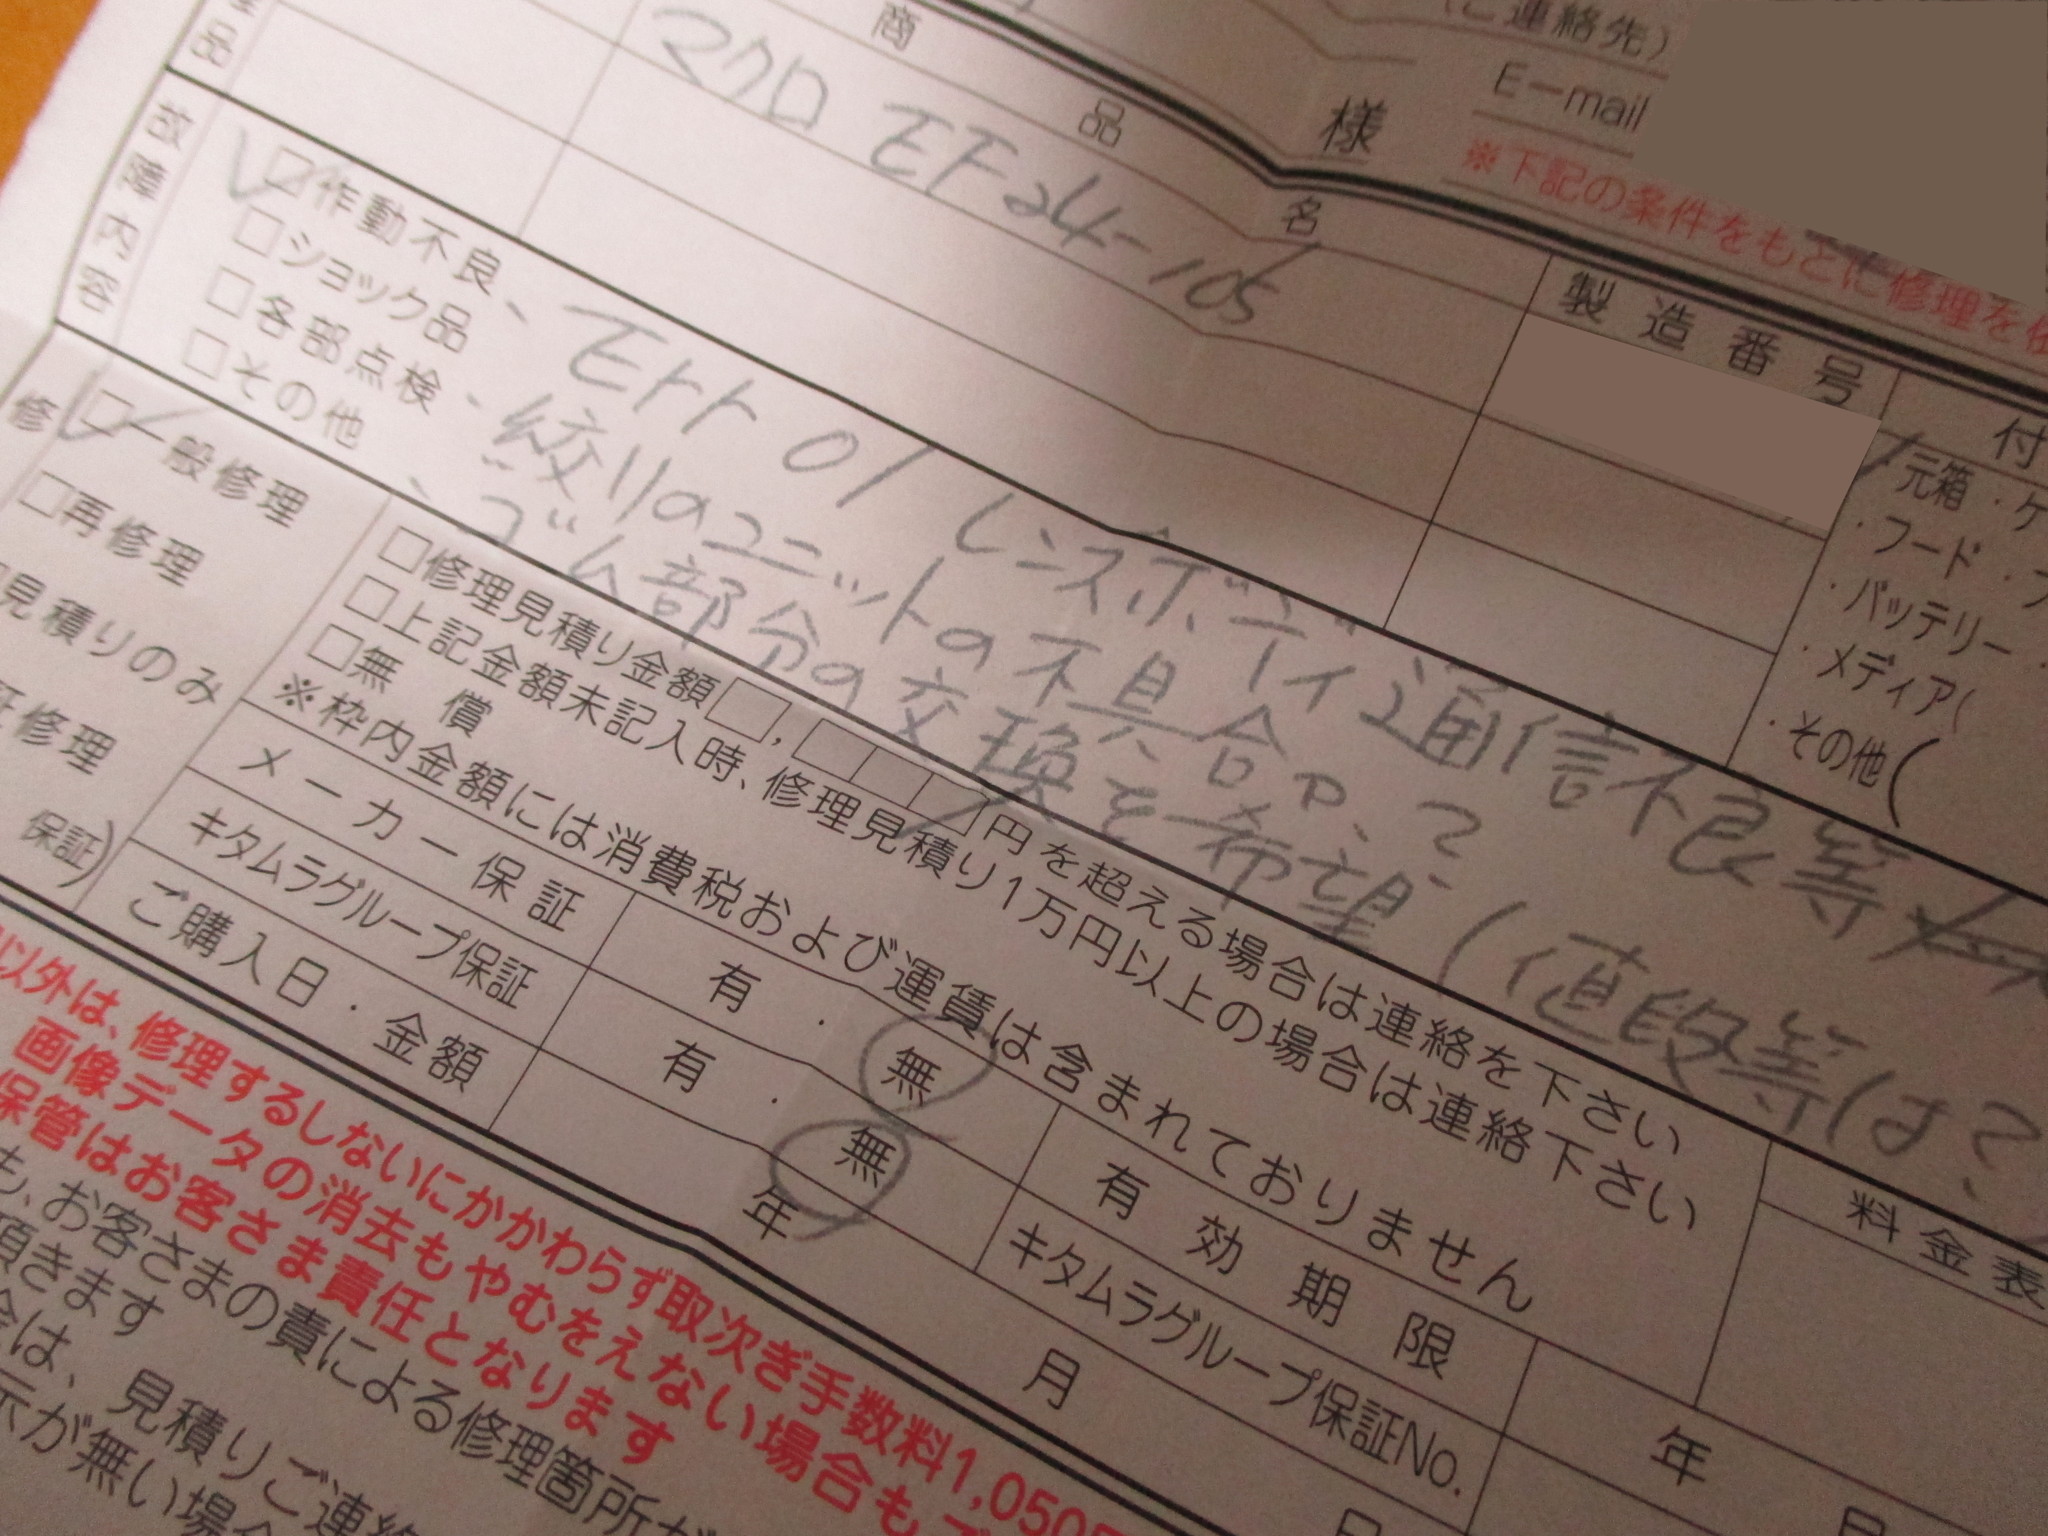 (ご連絡先)
E-mail
※下記の条件をもとに修理を依
様
品
商品名
製造番号
付
マクロ EF24-105
・元箱・ケ
・フード・
・バッテリー・
・メディア(
・その他(
故障内容
□作動不良
□ショック品
□各部点検
□その他
、Err 01 レンズボディ通信不良等
、絞りのユニットの不具合や、
、ゴム部分の交換を希望(値段等は?
修
□一般修理
□再修理
見積りのみ
証修理
保証)
□修理見積り金額□,□□□円を超える場合は連絡を下さい
□上記金額未記入時、修理見積り1万円以上の場合は連絡下さい
□無償
※枠内金額には消費税および運賃は含まれておりません
料金表
メーカー保証
有・無
有効期限
年
月
キタムラグループ保証
有・無
キタムラグループ保証No.
ご購入日・金額
年
月
日
以外は、修理するしないにかかわらず取次ぎ手数料1,050
画像データの消去もやむをえない場合も
保管はお客さま責任となります
も、お客さまの責による修理箇所が
頂きます
は、見積りご連絡
示が無い場合